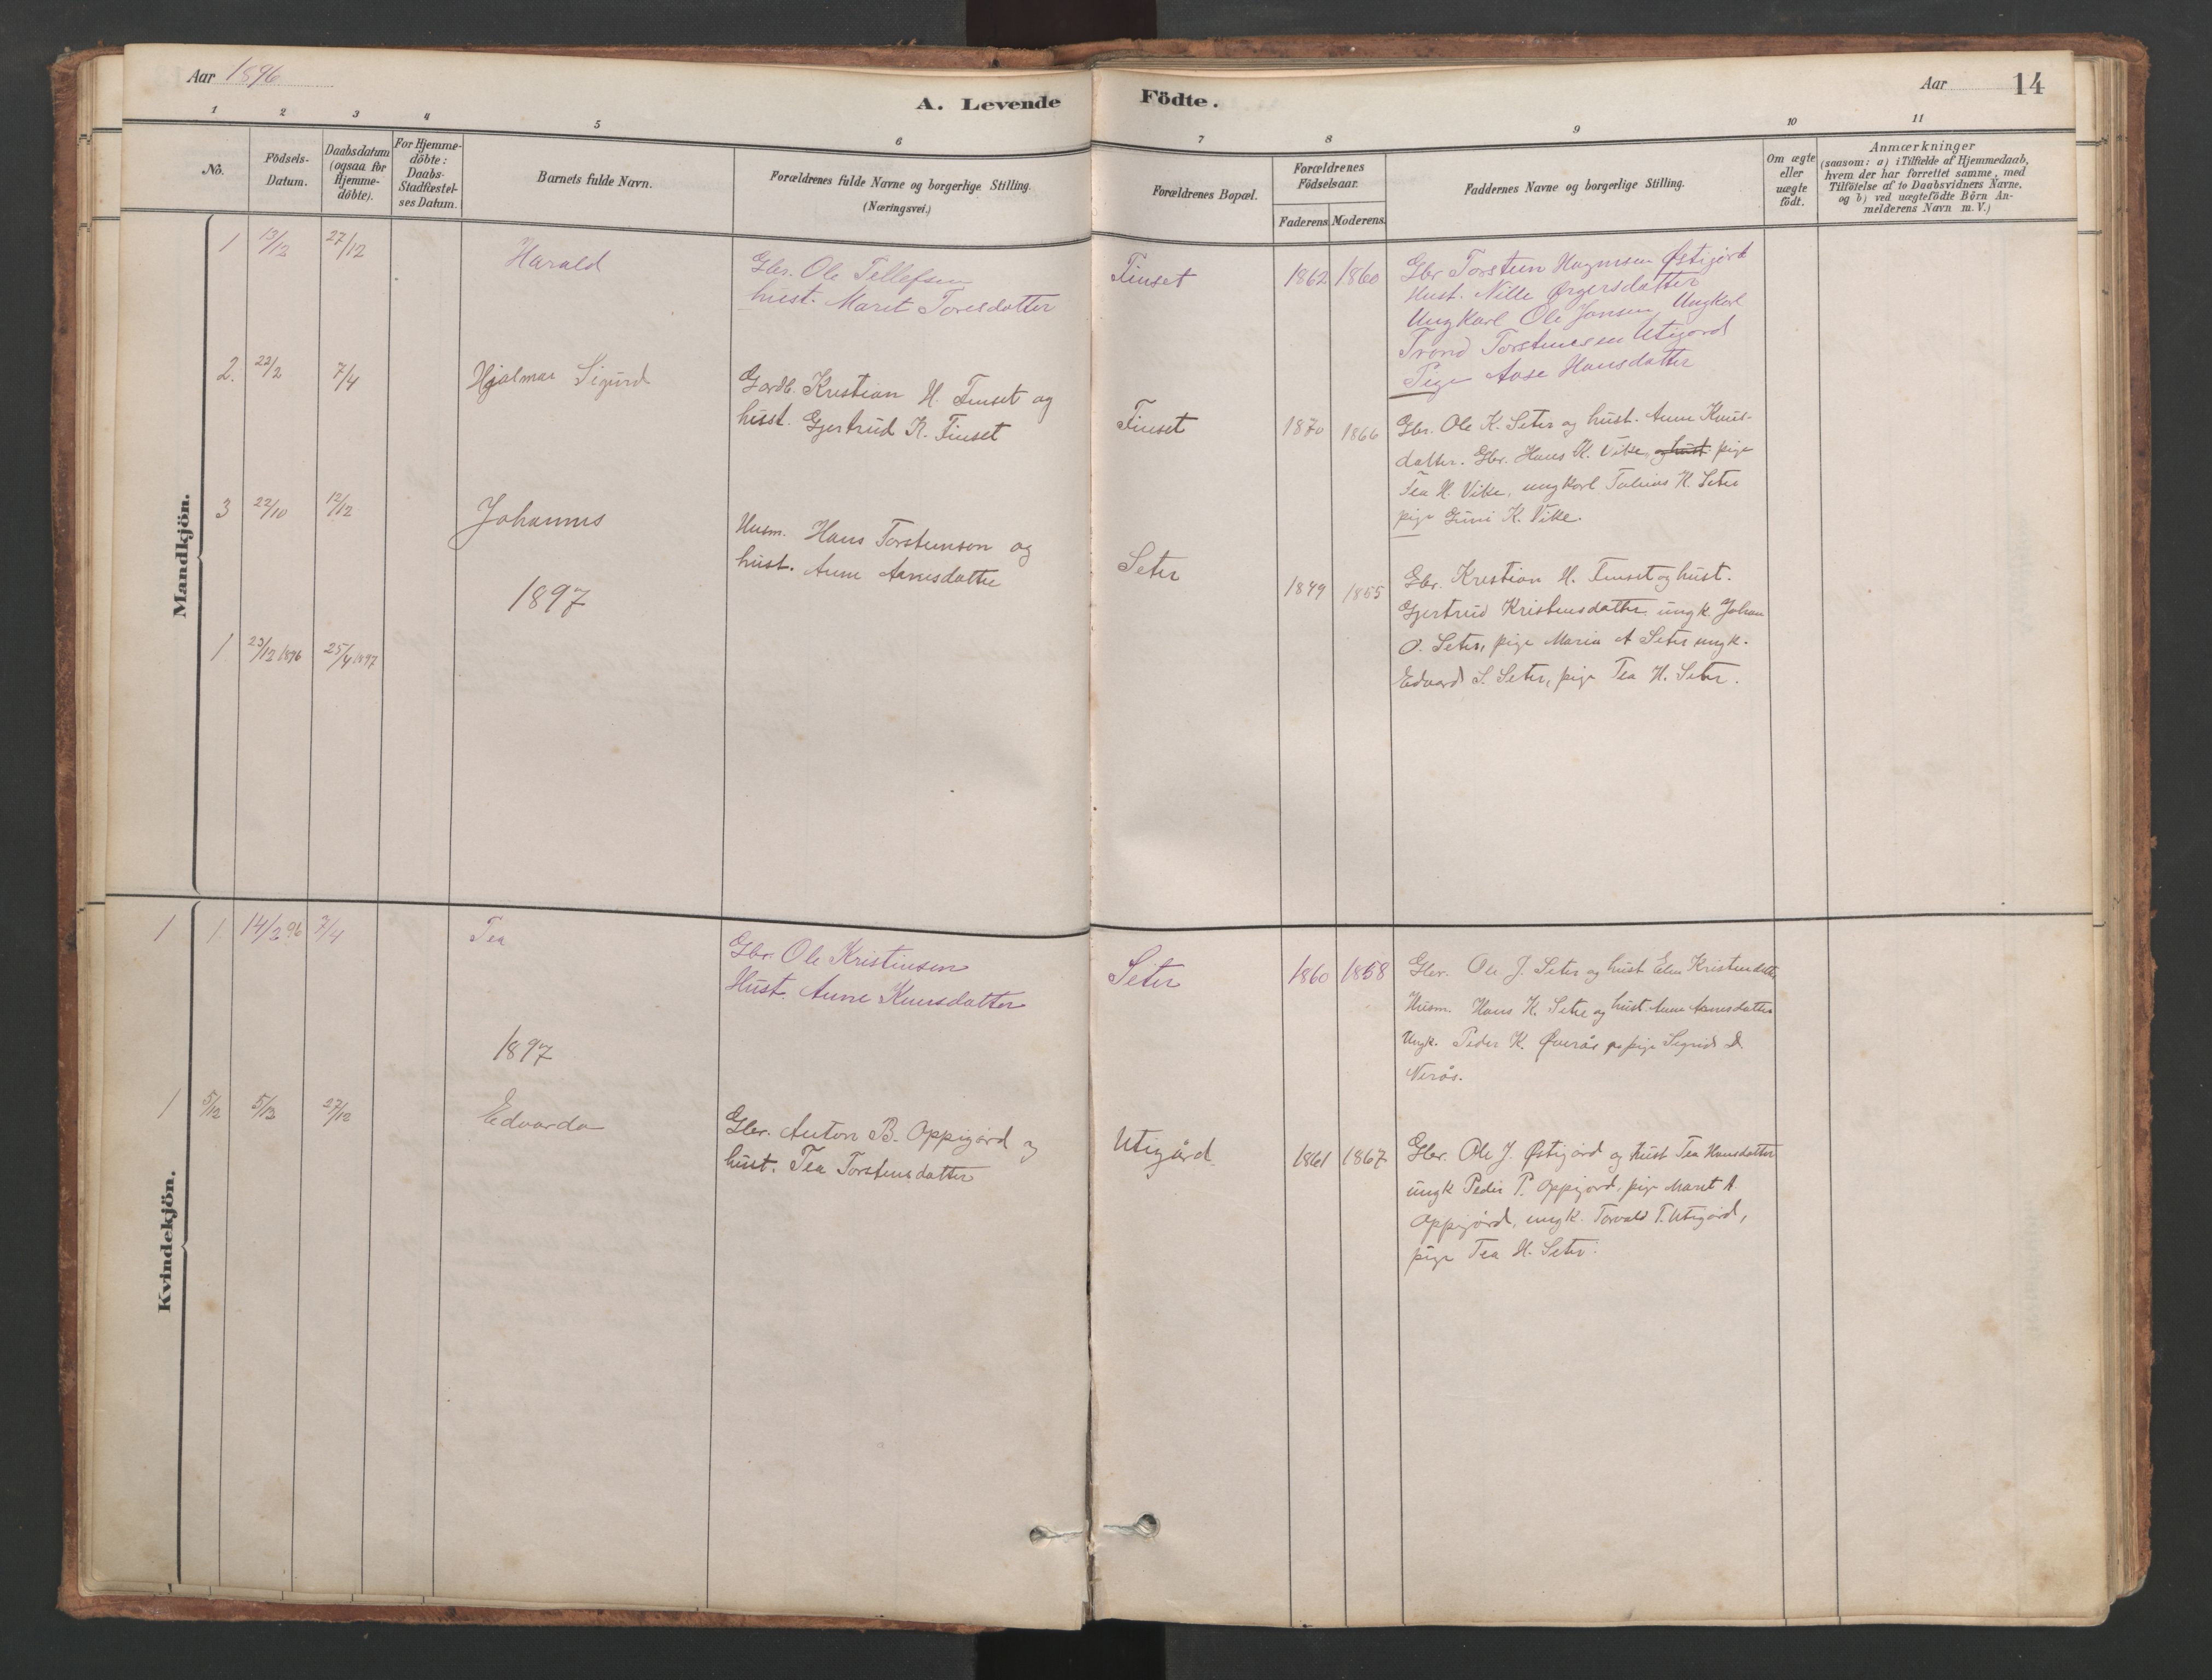 Aar 1896
A. Levende Födte.
Aar 14
1 2 3 4 5 6 7 8 9 10 11
No.
Födsels-Datum.
Daabsdatum (ogsaa for Hjemme-döbte).
For Hjemme-döbte: Daabs-Stadfæstel-ses Datum.
Barnets fulde Navn.
Forældrenes fulde Navne og borgerlige Stilling.
(Næringsvei.)
Forældrenes Bopæl.
Forældrenes Födselsaar.
Faderens Moderens
Faddernes Navne og borgerlige Stilling.
Om ægte eller uægte födt.
Anmærkninger
(saasom: a) i Tilfælde af Hjemmedaab,
hvem der har forrettet samme, med
Tilföielse af to Daabsvidners Navne,
og b) ved uægtefödte Börn An-
melderens Navn m. V.)
Mandkjön.
1 13/12 27/12 Harald
Gbr. Ole Tellefsen
hust. Marit Toresdatter
Finset 1862 1860
Gbr Torstein Østigård
Hust. Nille
Ungkarl Ole Jonsen Ungkarl
Trond Torstensen Utigård
Pige Aase Hansdatter
2. 22/2 7/4 Hjalmar Sigurd
Gardb. Kristian H. Finset og
hust. Gjertrud K. Finset
Finset 1870 1866
Gbr. Ole K. Seter og hust. Anne Knus-
datter. Gbr. Hans K. Vike, og hust pige
Tea H. Vike, ungkarl H. Seter
pige Guni K. Vike.
3 22/10 12/12 Johannes
Husm. Hans Torstenson og
hust. Anne Arnesdatter
Seter 1849 1855
Gbr. Kristian H. Finset og hust.
Gjertrud Kristensdatter, ungk. Johan
O. Seter, pige Maria A Seter ungk.
Edvard S. Seter, pige Tea H. Seter.
1897
1. 23/12 1896 25/4 1897
Kvindekjön.
1 1. 14/2 96 7/4 Tea
Gbr. Ole Kristensen
Hust. Anne Knusdatter
Seter 1860 1858
Gbr. Ole J. Seter og hust Elen Kristendatter
Husm. Hans K. Seter og hust. Anne Arnesdatter
Ungk. Peder K. Øverås pige Sigrid D.
Nerås.
1897
1 5/12 5/12 27/12 Edvarda
Gbr. Anton B. Oppigård og
hust. Tea Torstensdatter
Utigård 1861 1867
Gbr. Ole J. Østigård og hust Tea Hansdatter
ungk Peder P. Oppigård, pige Marit A.
Oppigård, ungk. Torvald T. Utigård,
pige Tea H. Seter.